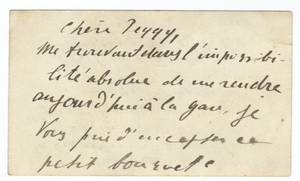 Chère Peggy,
me trouvant dans l'impossibi-
lité absolue de me rendre
aujourd'hui à la gare, je
vous prie d'accepter ce
petit bouquet